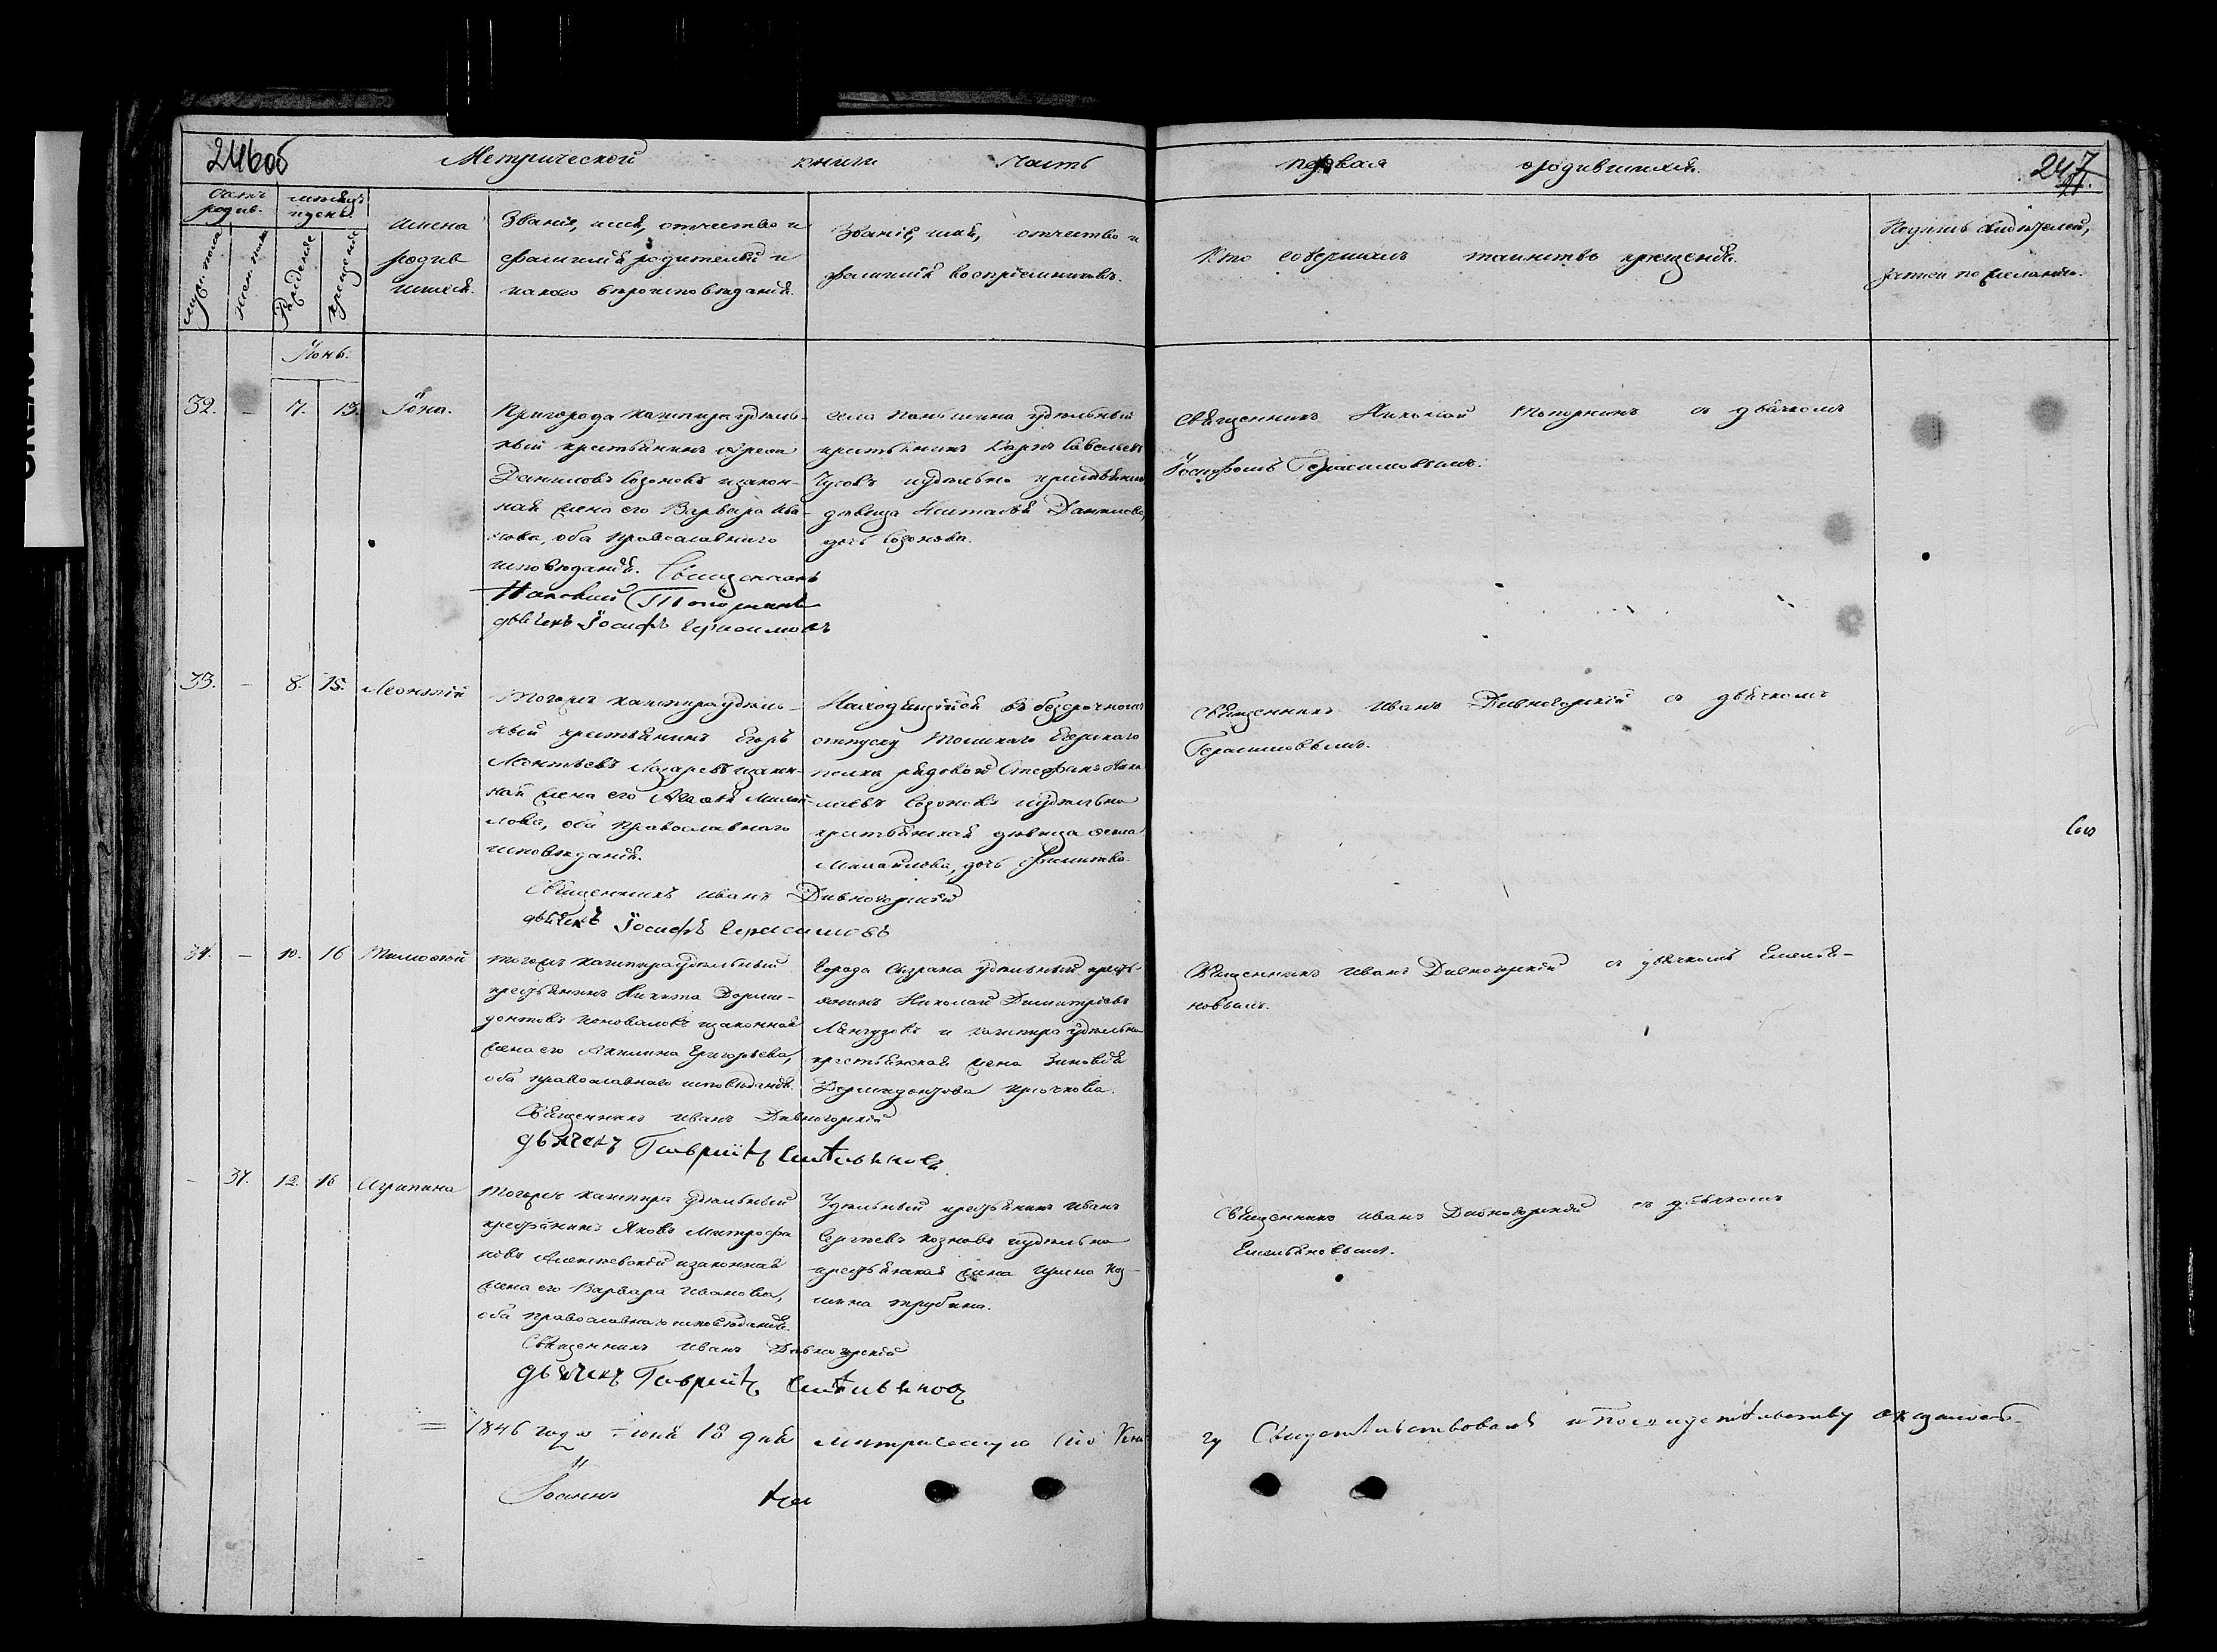 246об
Метрической книги часть первая о родившихся.
247
Счетъ родив.
мѣсяцъ и день.
муж. пола
жен. пола
Рожденіе
крещеніе
имена
родив
шихся.
Званіе, имя, отчество и
фамилія родителей и
какого вѣроисповѣданія.
Званіе, имя, отчество и
фамилія воспріемниковъ.
Кто совершалъ таинство крещенія.
свидѣтелей,
записи по желанію.
Іюнь.
32. - 7. 13. Іона.
Пригорода Кашпира удѣль-
ный крестьянинъ
Даниловъ Созоновъ и закон-
ная жена его Варвара Ива-
нова, оба православнаго
исповѣданія. Священникъ
Николай Топорнинъ
дьячекъ Іосифъ Герасимовъ
села удѣльный
крестьянинъ Карпъ Савельевъ
Чусовъ и удѣльна крестьянина
дѣвица Наталья Данилова,
дочь Созонова.
Священникъ Николай Топорнинъ съ дьячкомъ
Іосифомъ Герасимовымъ.
33. - 8. 15. Леонтій
Тогожъ Кашпира удѣль-
ный крестьянинъ Егоръ
Леонтьевъ Лазаревъ и закон-
ная жена его
лова, оба православнаго
исповѣданія.
Священникъ Иванъ Дивногорскій
дьячекъ Іосифъ Герасимовъ
Находящійся въ безсрочномъ
отпуску Томскаго Егерскаго
полка рядовой Стефанъ Нико
лаевъ Созоновъ и удѣльна
крестьянская дѣвица
Михайлова, дочь
Священникъ Иванъ Дивногорскій съ дьячкомъ
Герасимовымъ.
34. - 10. 16 Тимофей
Тогожъ Кашпира удѣльный
крестьянинъ Никита Дорми-
донтовъ Коноваловъ и законная
жена его Акилина Григорьева,
оба православнаго исповѣданія.
Священникъ Иванъ Дивногорскій
дьячекъ Гавріилъ Емельяновъ
Города Сызрана удѣльный кресть-
янинъ Николай Димитріевъ
Лангузовъ и Кашпира удѣльна
крестьянская жена Зиновія
Дормидонтова Крючкова.
Священникъ Иванъ Дивногорскій съ дьячкомъ Емелья-
новымъ.
- 31. 12. 16 Агрипина
Тогожъ Кашпира удѣльный
крестьянинъ Яковъ Митрофа
новъ Алексѣевскій и законная
жена его Варвара Иванова,
оба православнаго исповѣданія.
Священникъ Иванъ Дивногорскій
дьячекъ Гавріилъ Емельяновъ
Удѣльный крестьянинъ Иванъ
Сергѣевъ Козновъ и удѣльна
крестьянская жена Ирина Коз-
мина Трубина.
Священникъ Иванъ Дивногорскій съ дьячкомъ
Емельяновымъ.
1846 года Іюня 18 дня Метрическую сію Кни
гу Свидетельствовалъ и По свидетельству оказалось
Іоаннъ